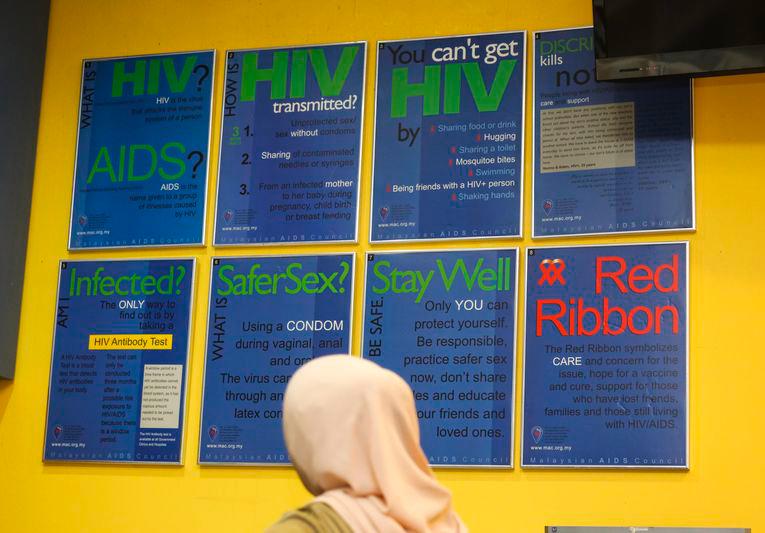 1
WHAT IS
HIV?
HIV is the virus
that attacks the immune
system of a person
AIDS?
AIDS is the
name given to a group
of illnesses caused
by HIV
www.mac.org.my
Malaysian AIDS Council
2
HOW IS
HIV
transmitted?
3
1. Unprotected sex/
sex without condoms
2. Sharing of contaminated
needles or syringes
3. From an infected mother
to her baby during
pregnancy, child birth
or breast feeding
www.mac.org.my
Malaysian AIDS Council
3
You can't get
HIV
by
Sharing food or drink
Hugging
Sharing a toilet
Mosquito bites
Swimming
Being friends with a HIV+ person
Shaking hands
www.mac.org.my
Malaysian AIDS Council
4
DISCRI
kills
not
care and support
www.mac.org.my
Malaysian AIDS Council
5
AM I
Infected?
The ONLY way to
find out is by
taking a
HIV Antibody Test
A HIV Antibody
Test is a blood
test that detects
HIV antibodies
in your body.
The test can
only be
conducted
three months
after a
possible risk
exposure to
HIV/AIDS
because there
is a window
period.
The HIV antibody test is
available at all Government
Clinics and Hospitals
www.mac.org.my
Malaysian AIDS Council
6
WHAT IS
SaferSex?
Using a CONDOM
during vaginal, anal
and or
The virus can
through an
latex con
www.mac.org.my
Malaysian AIDS
7
BE SAFE.
Stay Well
Only YOU can
protect yourself.
Be responsible,
practice safer sex
now, don't share
les and educate
our friends and
loved ones.
AIDS Council
8
Red
Ribbon
The Red Ribbon symbolizes
CARE and concern for the
issue, hope for a vaccine
and cure, support for those
who have lost friends,
families and those still living
with HIV/AIDS.
www.mac.org.my
Malaysian AIDS Council